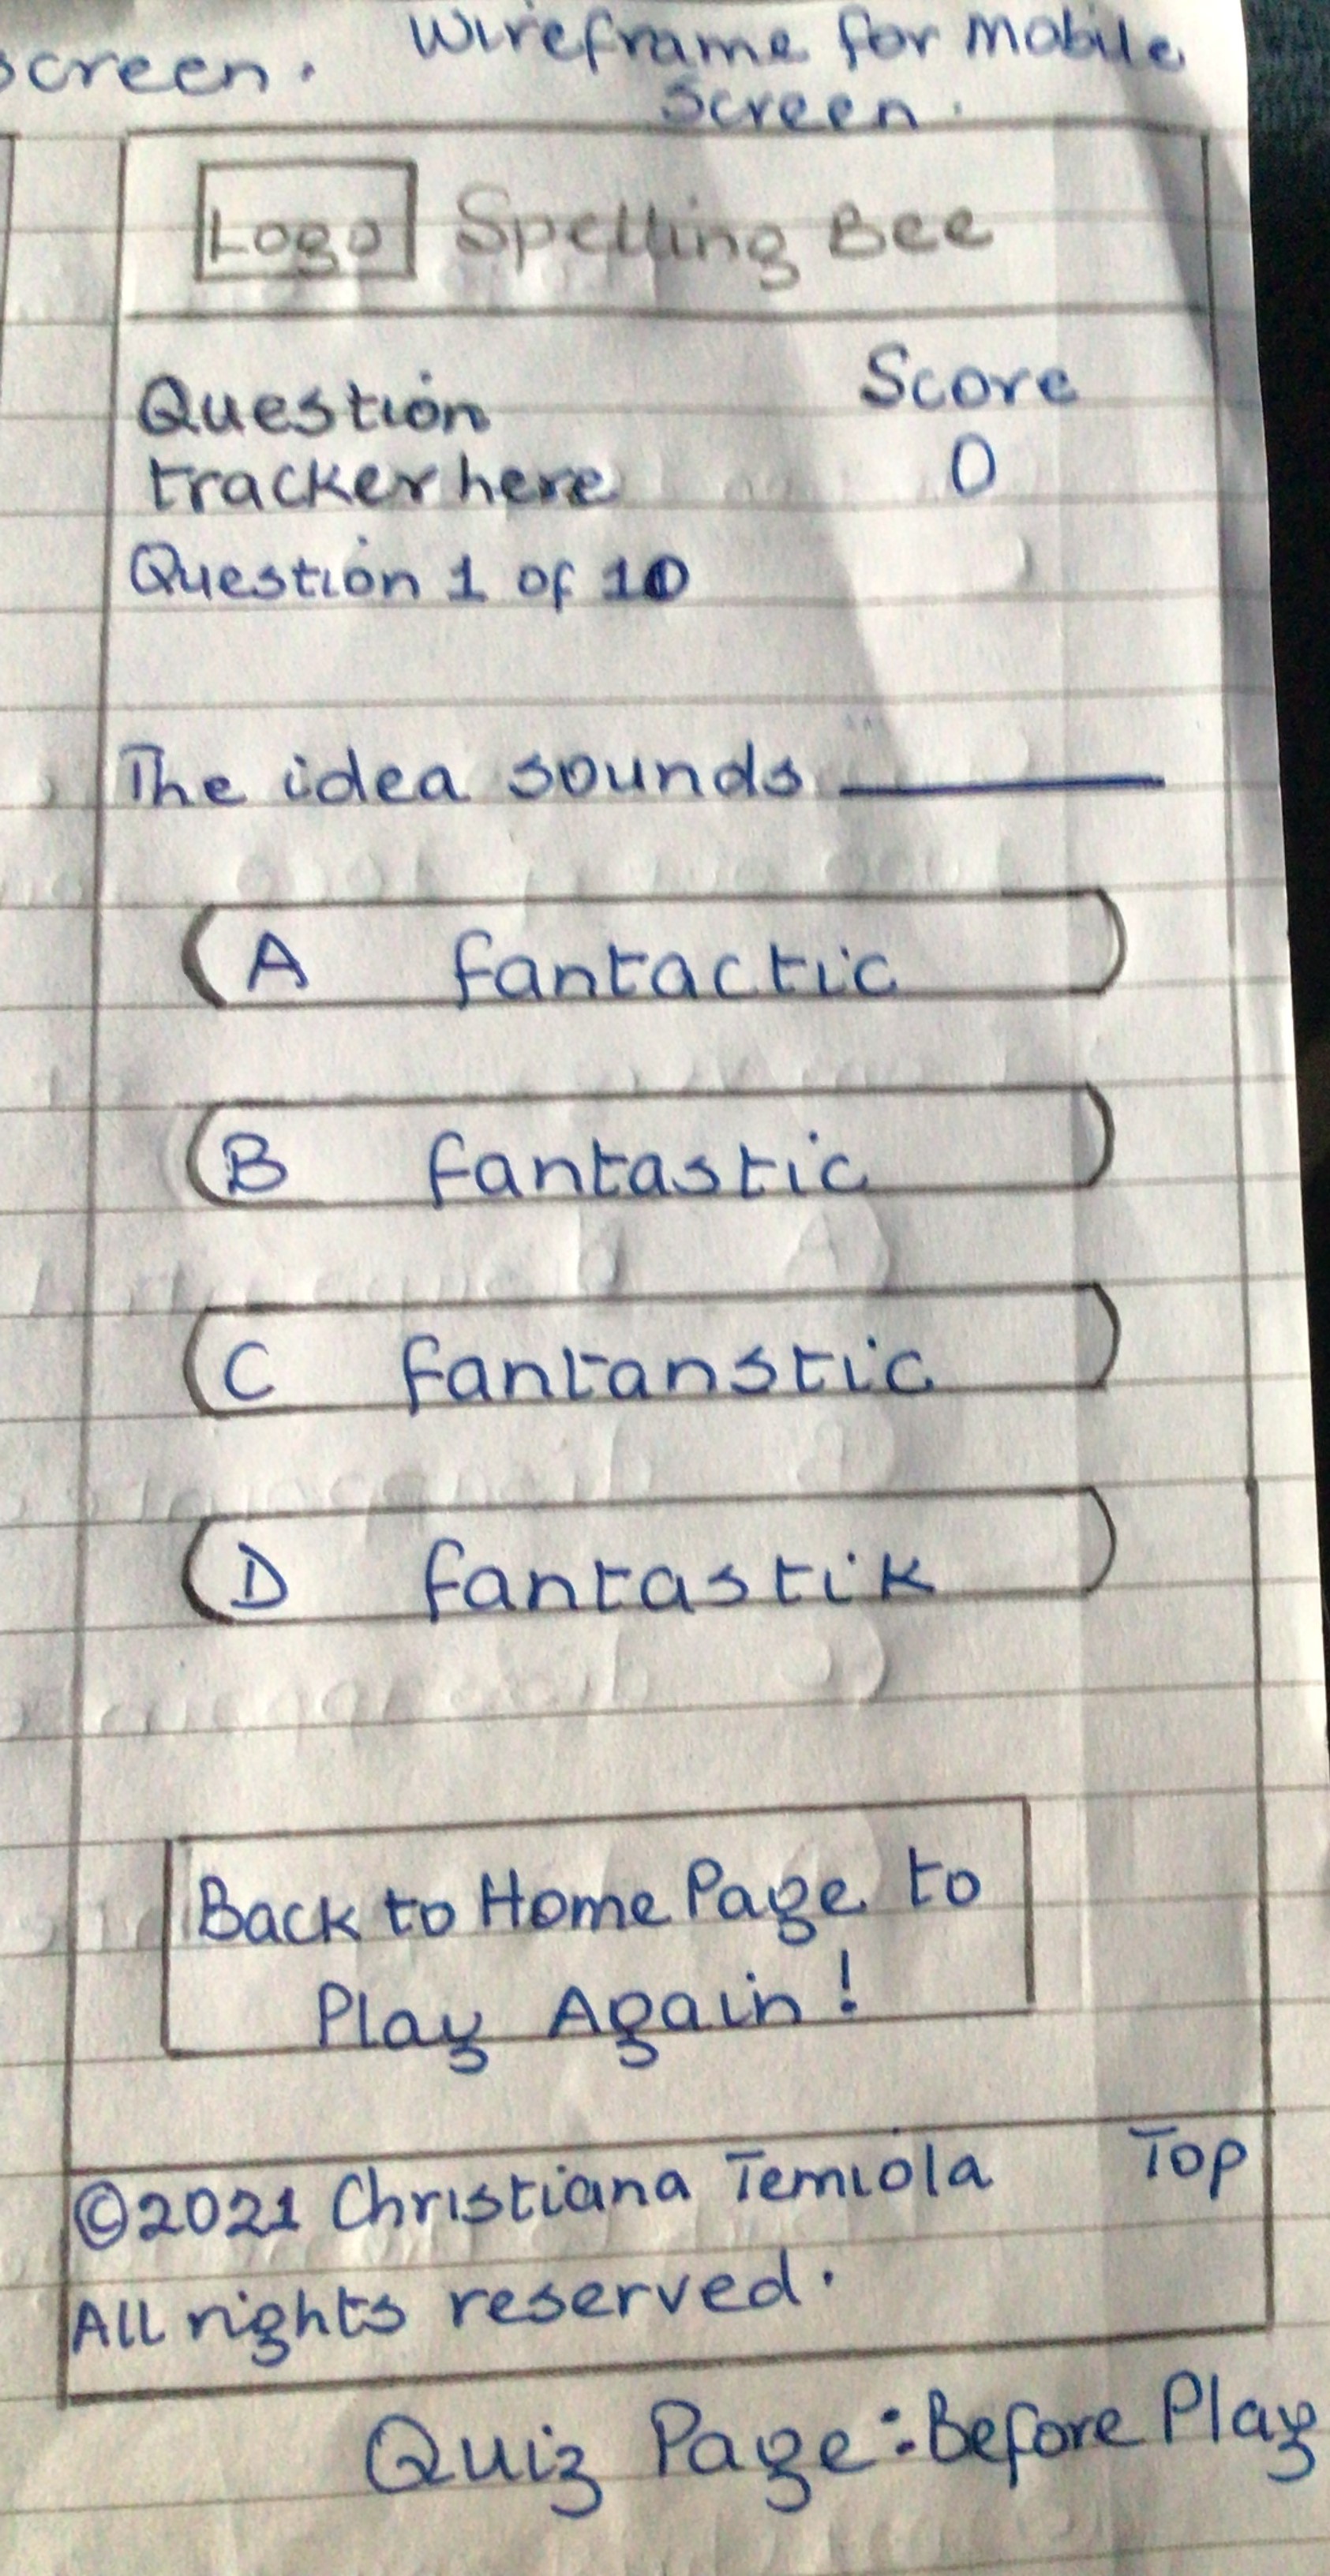 screen.
Wireframe for mobile
Screen.
Logo Spelling Bee
Question
tracker here
Score
0
Question 1 of 10
The idea sounds ________
A fantactic
B fantastic
C fantanstic
D fantastik
Back to Home Page to
Play Again!
©2021 Christiana Temiola
Top
All rights reserved.
Quiz Page: Before Play